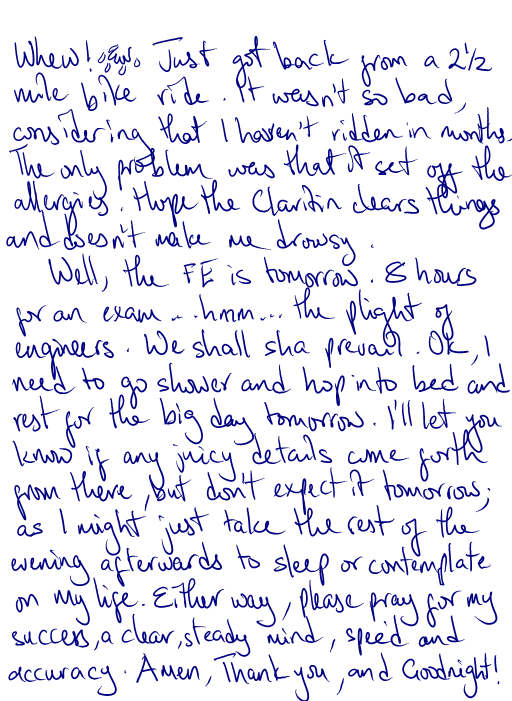 Whew! Just got back from a 2 1/2
mile bike ride. It wasn't so bad,
considering that I haven't ridden in months.
The only problem was that it set off the
allergies. I hope the Claritin clears things
and doesn't make me drowsy.
Well, the FE is tomorrow. 8 hours
for an exam...hmm... the plight of
engineers. We shall sha prevail. Ok, I
need to go shower and hop into bed and
rest for the big day tomorrow. I'll let you
know if any juicy details come forth
from there, but don't expect it tomorrow;
as I might just take the rest of the
evening afterwards to sleep or contemplate
on my life. Either way, please pray for my
success, a clear, steady mind, speed and
accuracy. Amen, Thank you, and Goodnight!